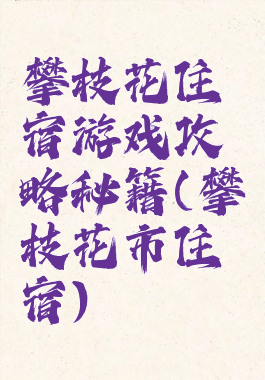 攀枝花住
宿游戏攻
略秘籍(攀
枝花市住
宿)